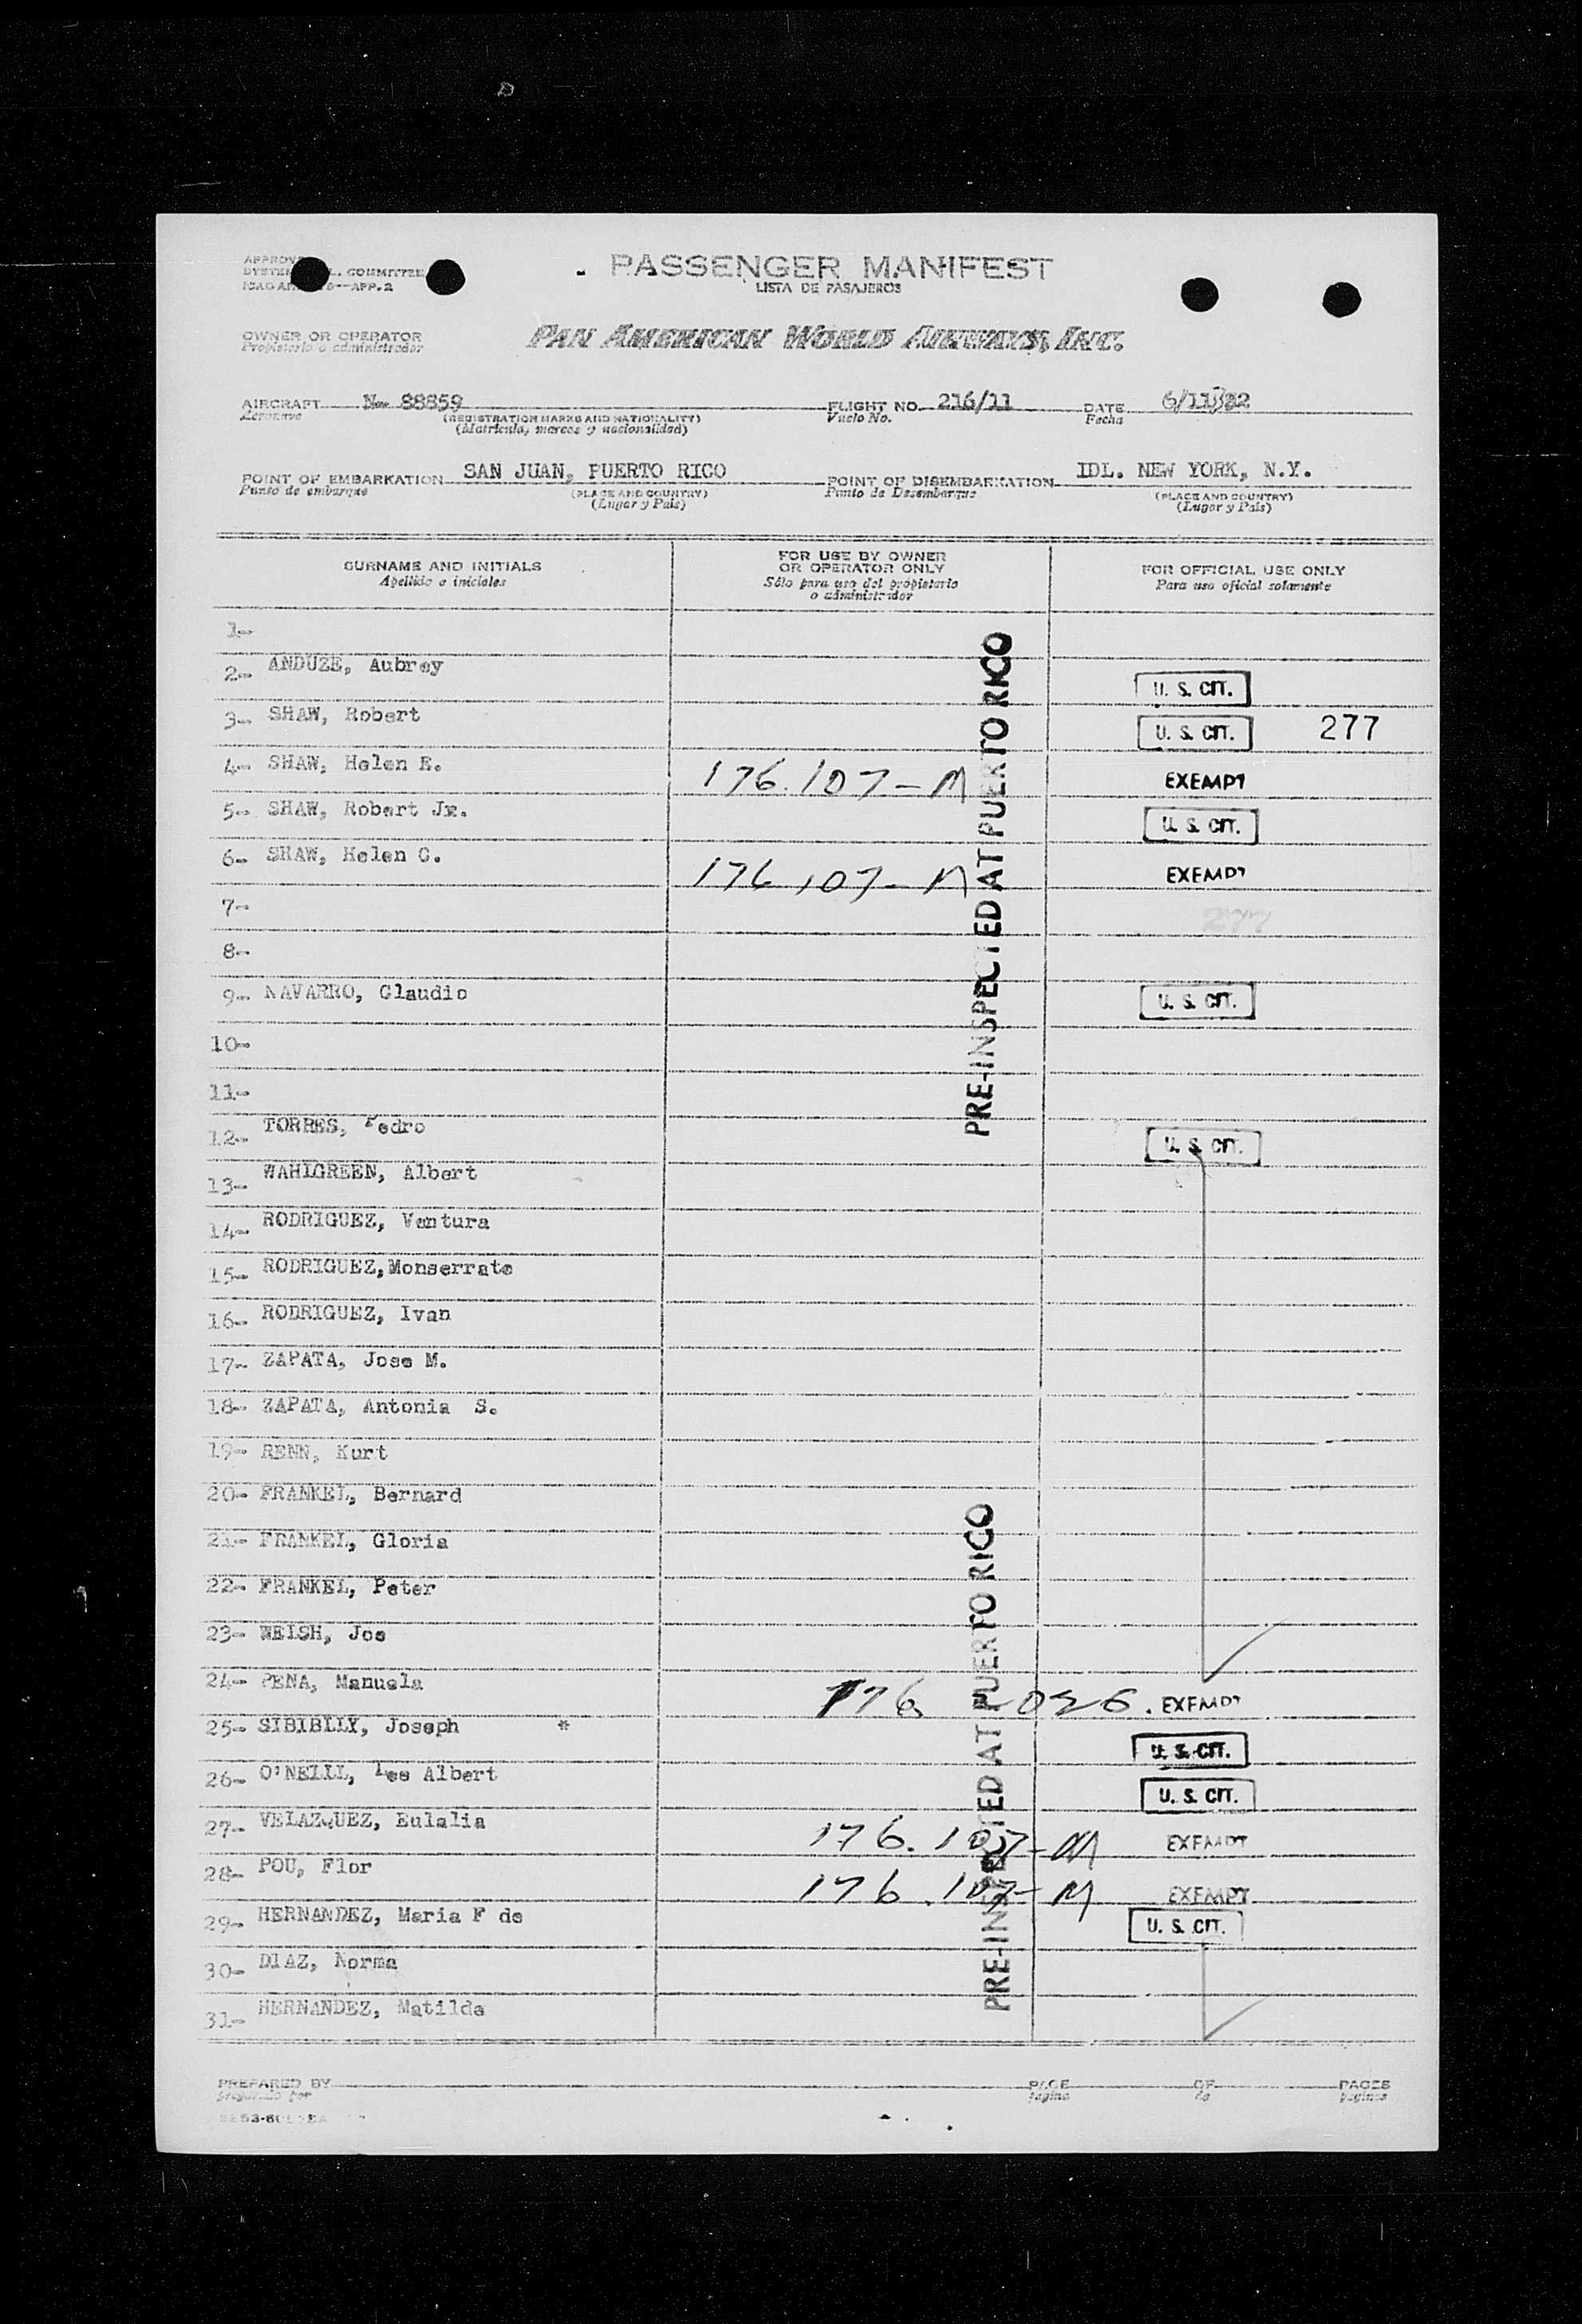 PASSENGER MANIFEST
LISTA DE PASAJEROS
COMMITTEE
APP. 2
OWNER OR OPERATOR
Propietario o administrador
PAN AMERICAN WORLD AIRWAYS, INC.
AIRCRAFT N- 88859 FLIGHT NO. 216/11 DATE
Aeronave (REGISTRATION MARKS AND NATIONALITY) Vuelo No. Fecha
(Matricula, marcas y nacionalidad)
POINT OF EMBARKATION SAN JUAN, PUERTO RICO POINT OF DISEMBARKATION IDL. NEW YORK, N.Y.
Punto de embarque (PLACE AND COUNTRY) Punto de Desembarque (PLACE AND COUNTRY)
(Lugar y País) (Lugar y País)
SURNAME AND INITIALS FOR USE BY OWNER OR OPERATOR ONLY FOR OFFICIAL USE ONLY
Apellido e iniciales Sólo para uso del propietario o administrador Para uso oficial solamente
1-
2- ANDUZE, Aubrey U. S. CIT.
3- SHAW, Robert U. S. CIT. 277
4- SHAW, Helen E. 176.107-M EXEMPT
5- SHAW, Robert Jr. U. S. CIT.
6- SHAW, Helen C. 176.107-M EXEMPT
7- 277
8-
9- NAVARRO, Claudio U. S. CIT.
10-
11-
12- TORRES, Pedro U. S. CIT.
13- WAHIGREEN, Albert
14- RODRIGUEZ, Ventura
15- RODRIGUEZ, Monserrate
16- RODRIGUEZ, Ivan
17- ZAPATA, Jose M.
18- ZAPATA, Antonia S.
19- RENN, Kurt
20- FRANKEL, Bernard
21- FRANKEL, Gloria
22- FRANKEL, Peter
23- WEISH, Joe
24- PENA, Manuela 176 EXEMPT
25- SIBIBLLY, Joseph * U. S. CIT.
26- O'NEILL, Lee Albert U. S. CIT.
27- VELAZQUEZ, Eulalia 176.107-M EXEMPT
28- POU, Flor 176.107-M EXEMPT
29- HERNANDEZ, Maria F de U. S. CIT.
30- DIAZ, Norma
31- HERNANDEZ, Matilde
PRE-INSPECTED AT PUERTO RICO
PRE-INSPECTED AT PUERTO RICO
PREPARED BY PAGE OF PAGES
preparado por página de páginas